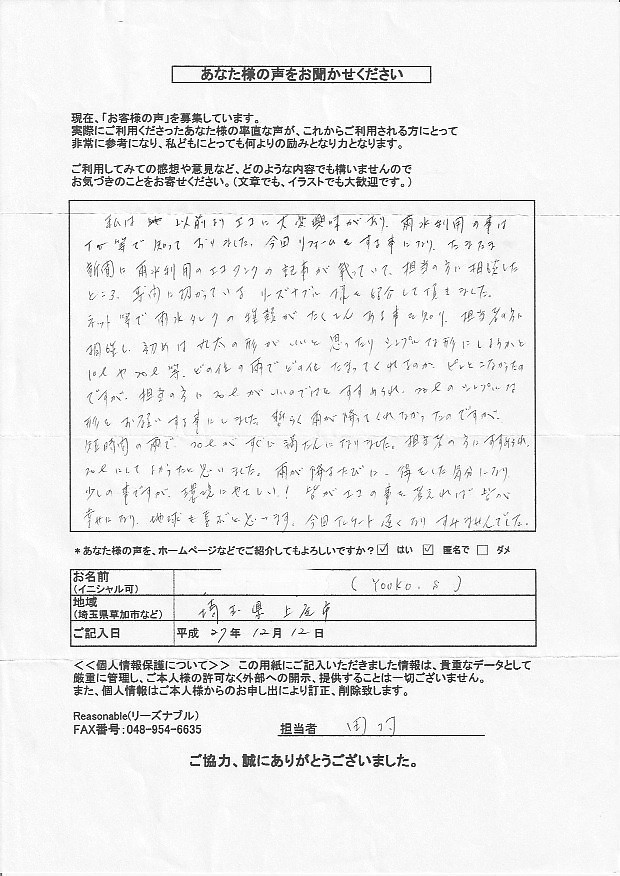 あなた様の声をお聞かせください
現在、「お客様の声」を募集しています。
実際にご利用くださったあなた様の率直な声が、これからご利用される方にとって
非常に参考になり、私どもにとっても何よりの励みとなり力となります。
ご利用してみての感想や意見など、どのような内容でも構いませんので
お気づきのことをお寄せください。(文章でも、イラストでも大歓迎です。)
私は 以前よりエコに大変興味があり、雨水利用の事は
等で知っておりました。今回リフォームをする事になり、たまたま
新聞に雨水利用のエコタンクの記事が載っていて、担当の方に相談した
ところ、専門に扱っている リーズナブル 様を紹介して頂きました。
ネット等で雨水タンクの種類がたくさんある事を知り、担当者の方に
相談し、初めは丸太の形がいいと思ったりシンプルな形にしようかと
10ℓや20ℓ等、どの位の雨でどの位たまってくれるのか、ピンとこなかったの
ですが、担当の方に 20ℓがいいのではとすすめられ、20ℓのシンプルな
形をお願いする事にしました。暫らく雨が降ってくれなかったのですが、
短時間の雨で、20ℓがすぐに満たんになりました。担当者の方にすすめられ、
20ℓにしてよかったと思いました。雨が降るたびに、得をした気分になり
少しの事ですが、環境にやさしい! 皆がエコの事を考えれば皆が
幸せになり、地球も喜ぶと思います。今回アンケート遅くなりすみませんでした。
*あなた様の声を、ホームページなどでご紹介してもよろしいですか? ☑ はい ☑ 匿名で □ ダメ
お名前
(イニシャル可) (Yooko. S)
地域
(埼玉県草加市など) 埼玉県上尾市
ご記入日 平成 27年 12月 12日
<<個人情報保護について>> この用紙にご記入いただきました情報は、貴重なデータとして
厳重に管理し、ご本人様の許可なく外部への開示、提供することは一切ございません。
また、個人情報はご本人様からのお申し出により訂正、削除致します。
Reasonable(リーズナブル)
FAX番号:048-954-6635 担当者
ご協力、誠にありがとうございました。